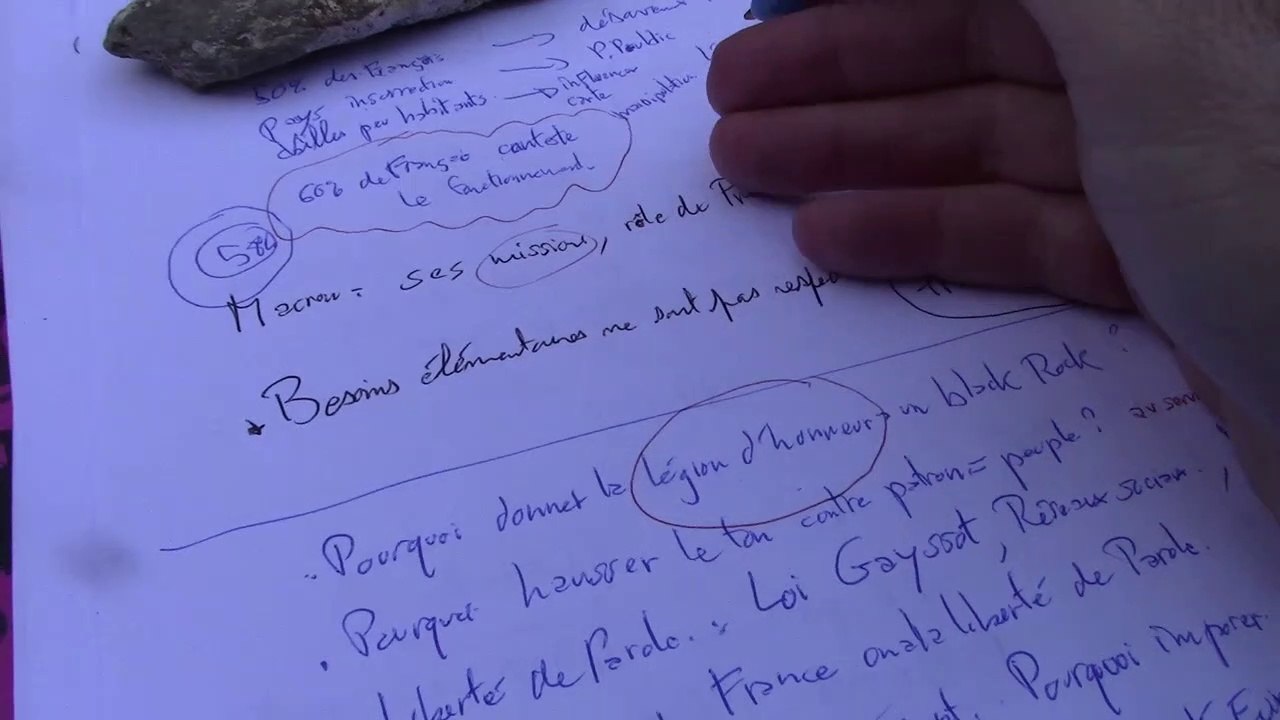 50% des Français → désaveu
Pays insurrection → P. Public
Villes peu habitants → influencer
carte manipulation
60% de Français conteste
le fonctionnement.
58%
Macron = ses mission, rôle de
Besoins élémentaires ne sont pas
Pourquoi donner la légion d'honneur → un black Rock ?
Pourquoi hausser le ton contre patron = peuple ? au
Libertés de Parole : Loi Gayssot, Réseaux sociaux.
France on a la liberté de Parole.
Pourquoi imposer